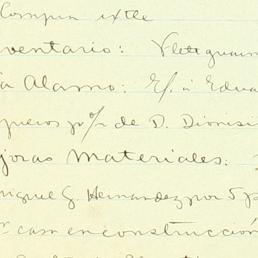 Compra ixtle
ventario:
a Alamo: Ef. a Edua
queros p% de D. Dionisi
joras Materiales:
rique G. Hernandez por 5 p
casa en construcción